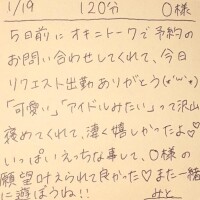 1/19 120分 O様
5日前にオキニトークで予約の
お問い合わせしてくれて、今日
リクエスト出勤ありがとう(*'▽'*)
「可愛い」「アイドルみたい」って沢山
褒めてくれて、凄く嬉しかったよ♡
いっぱいえっちな事して、O様の
願望叶えられて良かった♡また一緒
に遊ぼうね!! みと